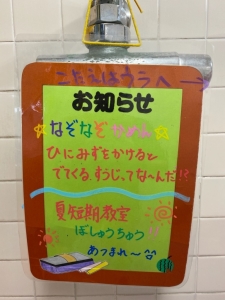 こたえはうらへ→
お知らせ
☆なぞなぞ☆
ひにみずをかけると
でてくるすうじってな〜んだ!?
夏短期教室
ぼしゅうちゅう
あつまれ〜^^